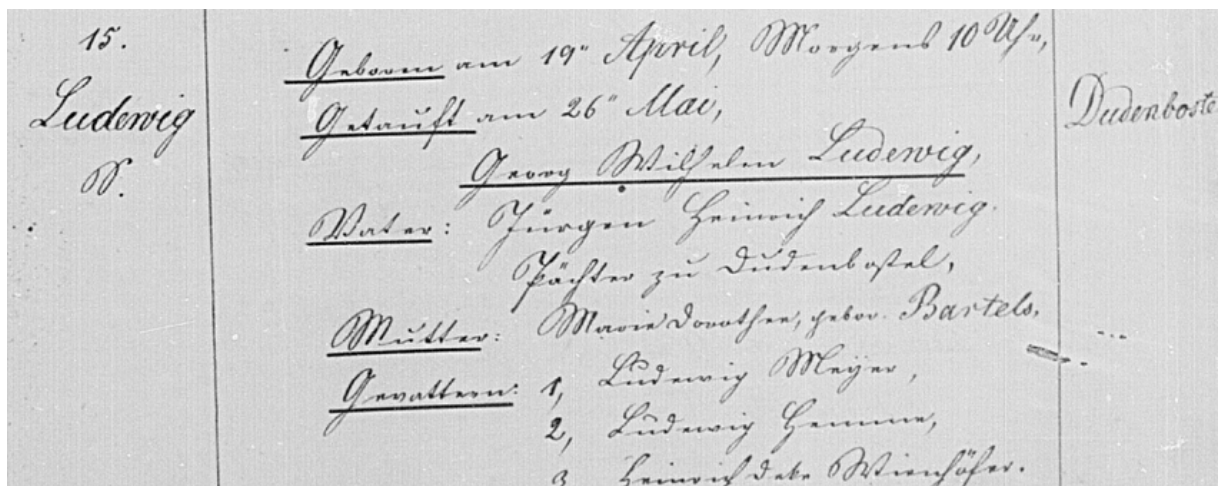 15.
Ludewig
S.
Geboren am 19" April, Morgens 10 Uhr,
Getauft am 26" Mai,
Georg Wilhelm Ludewig,
Vater: Jürgen Heinrich Ludewig.
Pächter zu Dudenbostel,
Mutter: Marie Dorothee, gebor. Bartels,
Gevattern: 1, Ludewig Meyer,
2, Ludewig Hemme,
3 Heinrich
Dudenboste